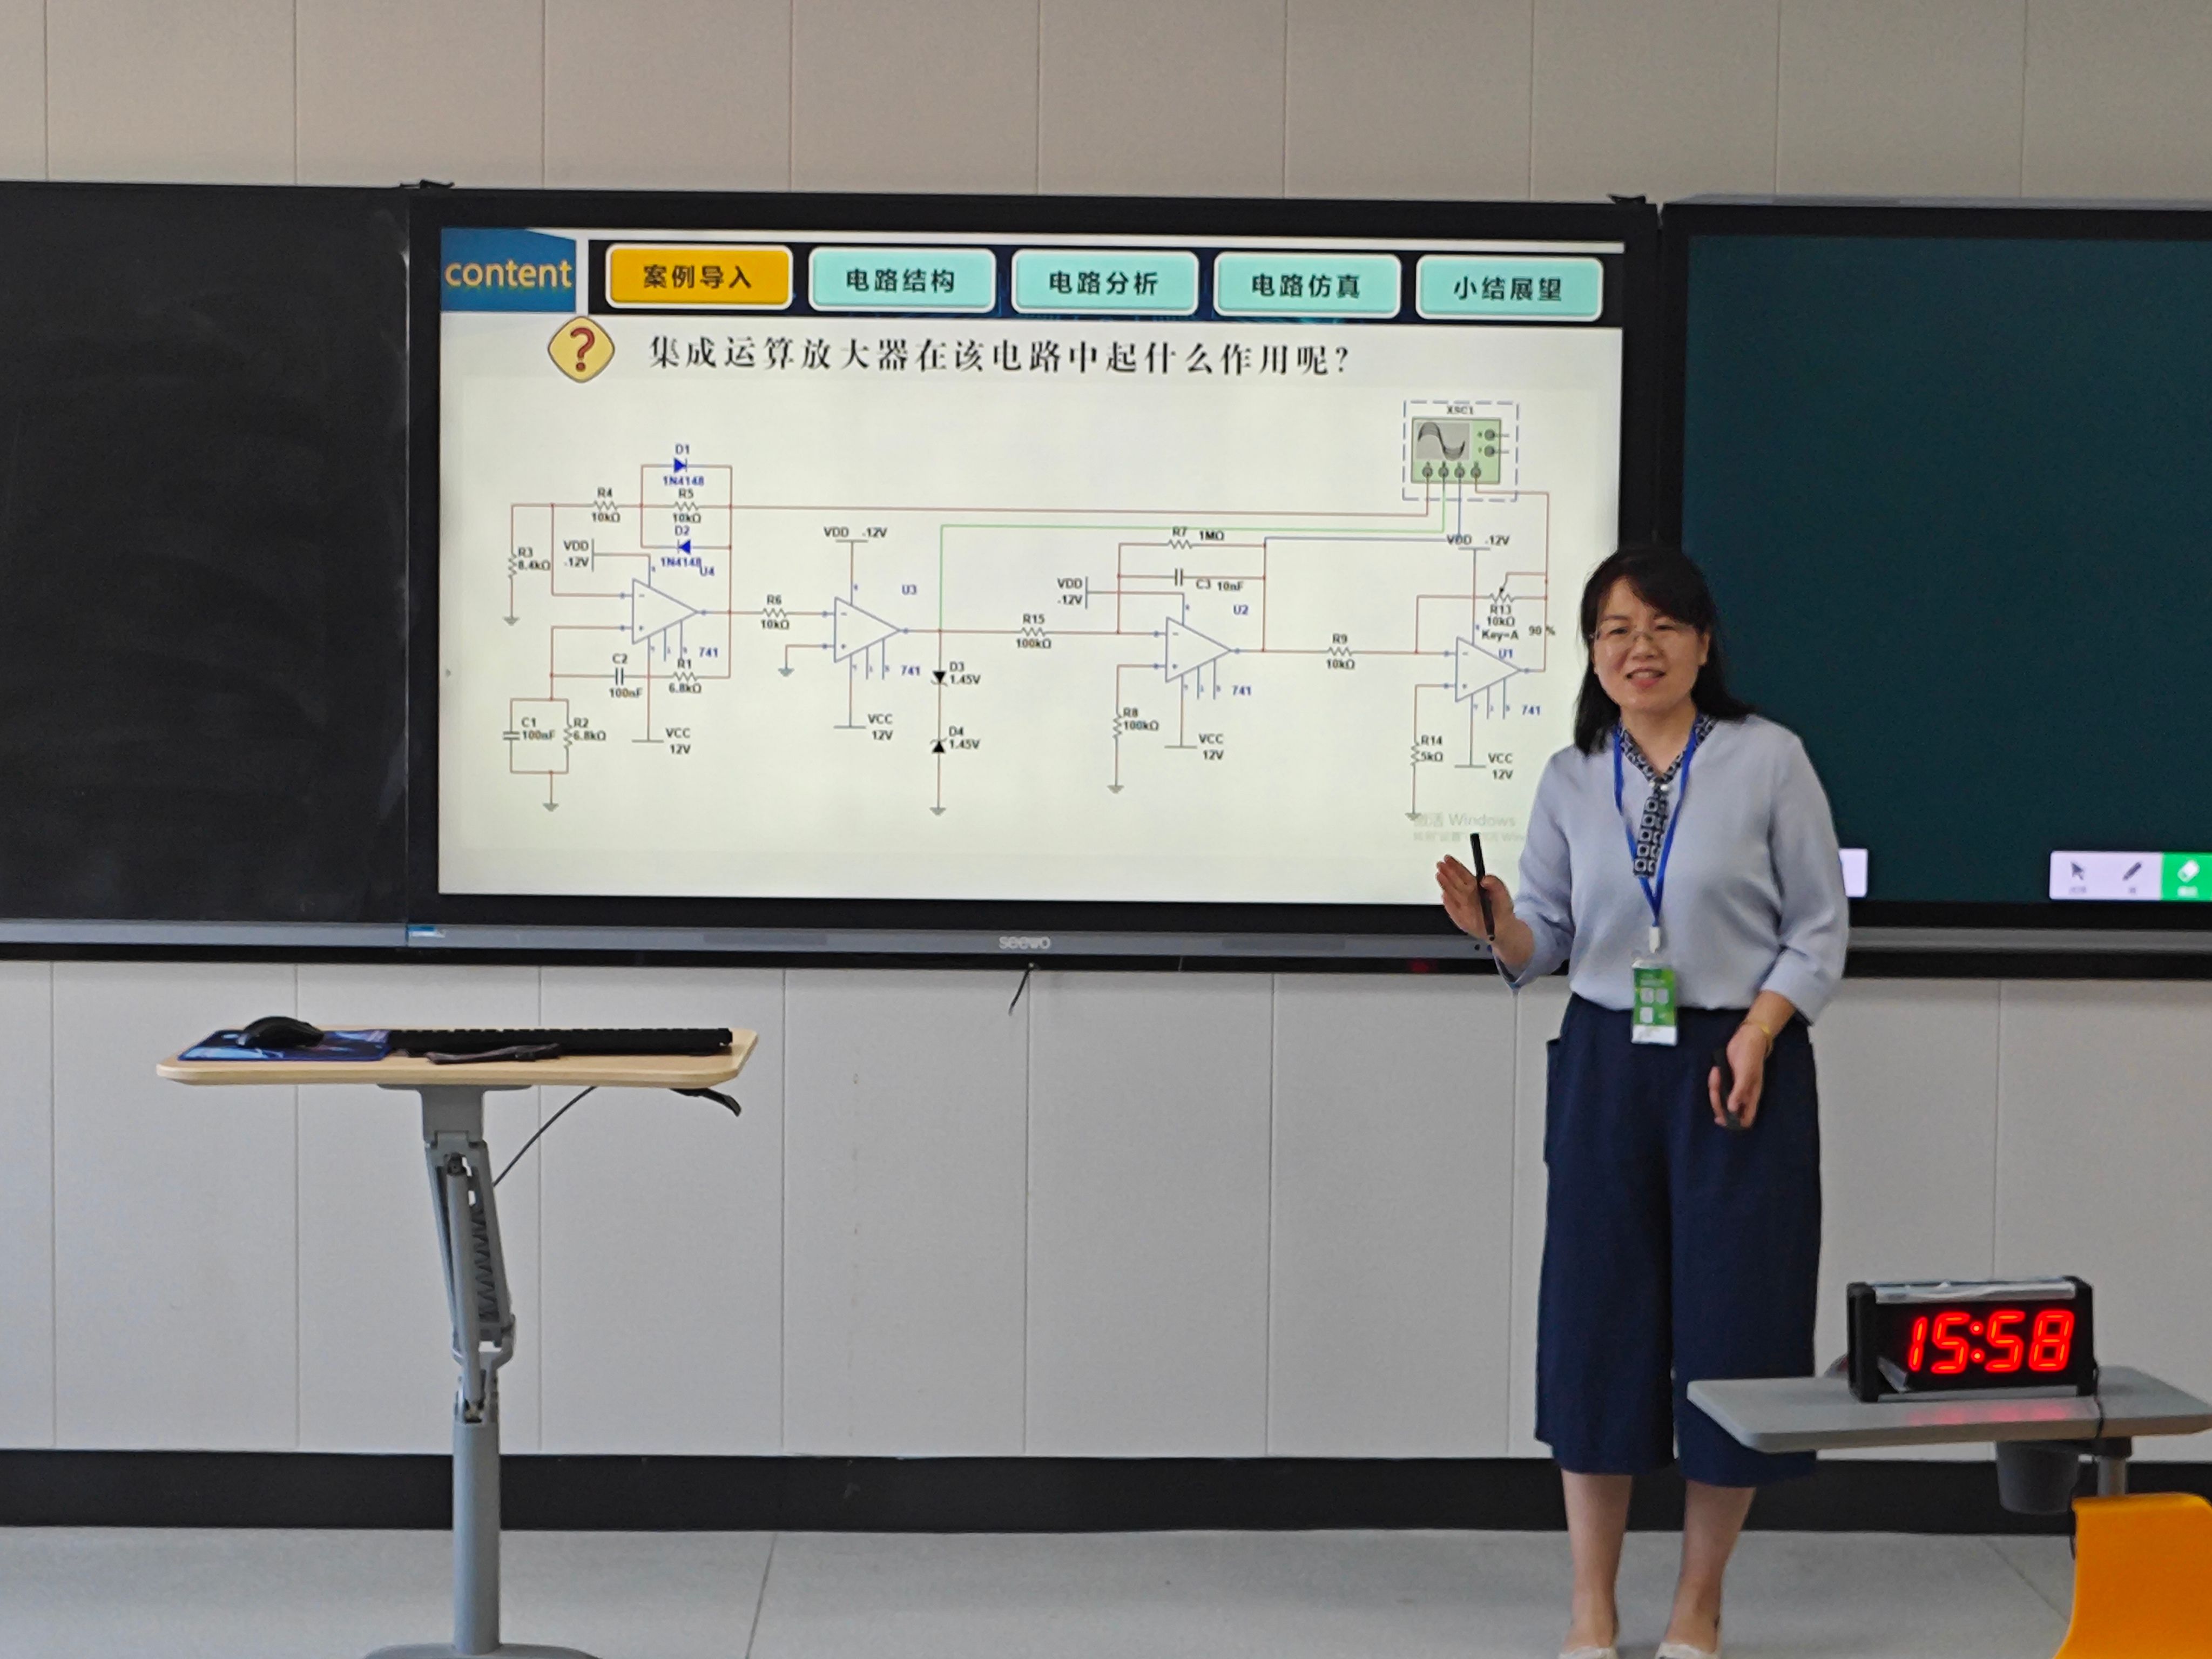 content
案例导入
电路结构
电路分析
电路仿真
小结展望
?
集成运算放大器在该电路中起什么作用呢?
XSC1
D1
1N4148
R4
10kΩ
R5
10kΩ
D2
1N4148
U4
R3
8.4kΩ
VDD
-12V
741
C2
100nF
R1
6.8kΩ
C1
100nF
R2
6.8kΩ
VCC
12V
R6
10kΩ
VDD -12V
U3
741
VCC
12V
D3
1.45V
D4
1.45V
R15
100kΩ
R7 1MΩ
C3 10nF
VDD
-12V
U2
741
R8
100kΩ
VCC
12V
R9
10kΩ
VDD -12V
R13
10kΩ
Key=A
90 %
U1
741
R14
5kΩ
VCC
12V
激活 Windows
seewo
15:58